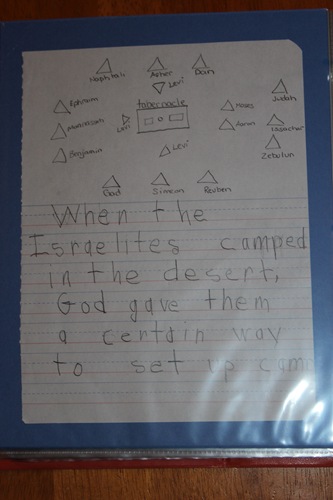 Naphtali Asher Dan
Levi
Ephraim tabernacle Moses Judah
Manassah Levi Aaron Issachar
Benjamin Levi Zebulun
God Simeon Reuben
When the
Israelites camped
in the desert,
God gave them
a certain way
to set up camp